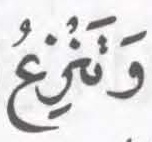 وَتَنْزِعُ